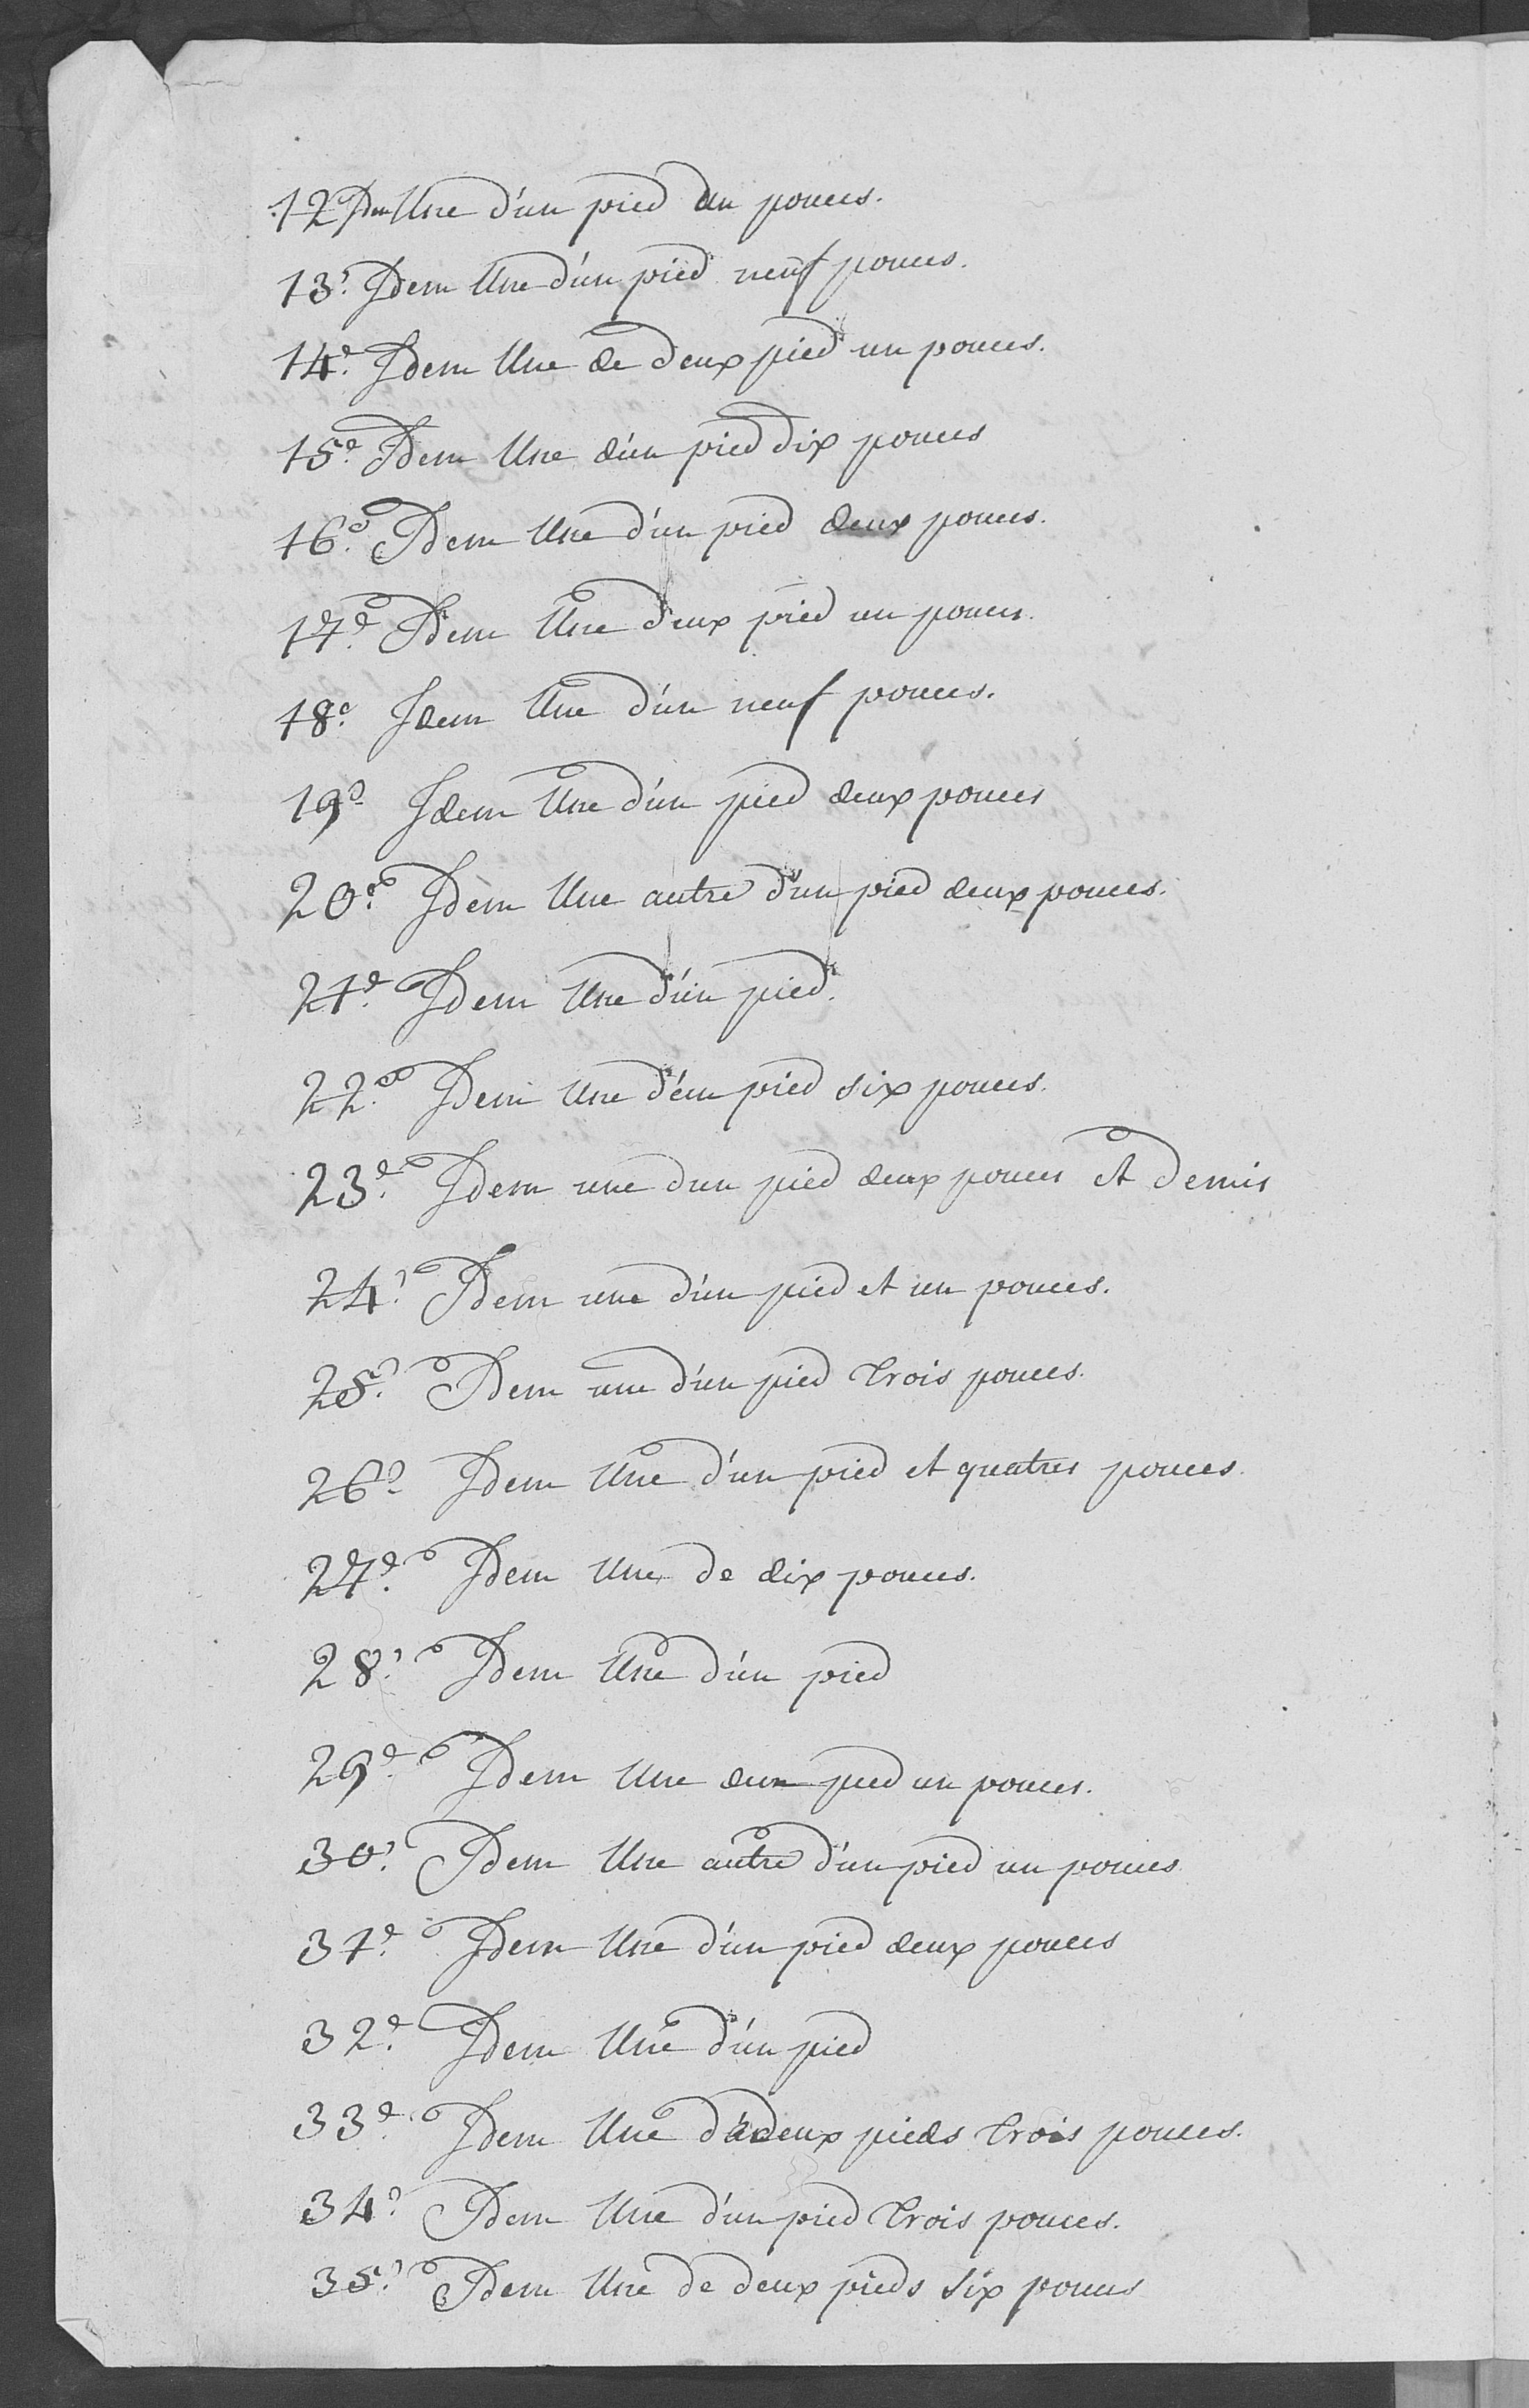 12. Idem Une d'un pied un pouces.
13e. Idem Une d'un pied neuf pouces.
14e. Idem Une de deux pied un pouces.
15e. Idem Une d'un pied dix pouces
16e. Idem Une d'un pied deux pouces.
17e. Idem Une deux pied un pouces.
18e. Idem Une d'un neuf pouces.
19e. Idem Une d'un pied deux pouces
20e. Idem Une autre d'un pied deux pouces.
21e. Idem Une d'un pied.
22e. Idem Une d'un pied six pouces.
23e. Idem une d'un pied deux pouces et demis
24e. Idem une d'un pied et un pouces.
25e. Idem une d'un pied trois pouces.
26e. Idem Une d'un pied et quatres pouces.
27e. Idem Une de dix pouces.
28e. Idem Une d'un pied
29e. Idem Une d'un pied un pouces.
30e. Idem Une autre d'un pied un pouces
31e. Idem Une d'un pied deux pouces
32e. Idem Une d'un pied
33e. Idem Une de deux pieds trois pouces.
34e. Idem Une d'un pied trois pouces.
35e. Idem Une de deux pieds six pouces